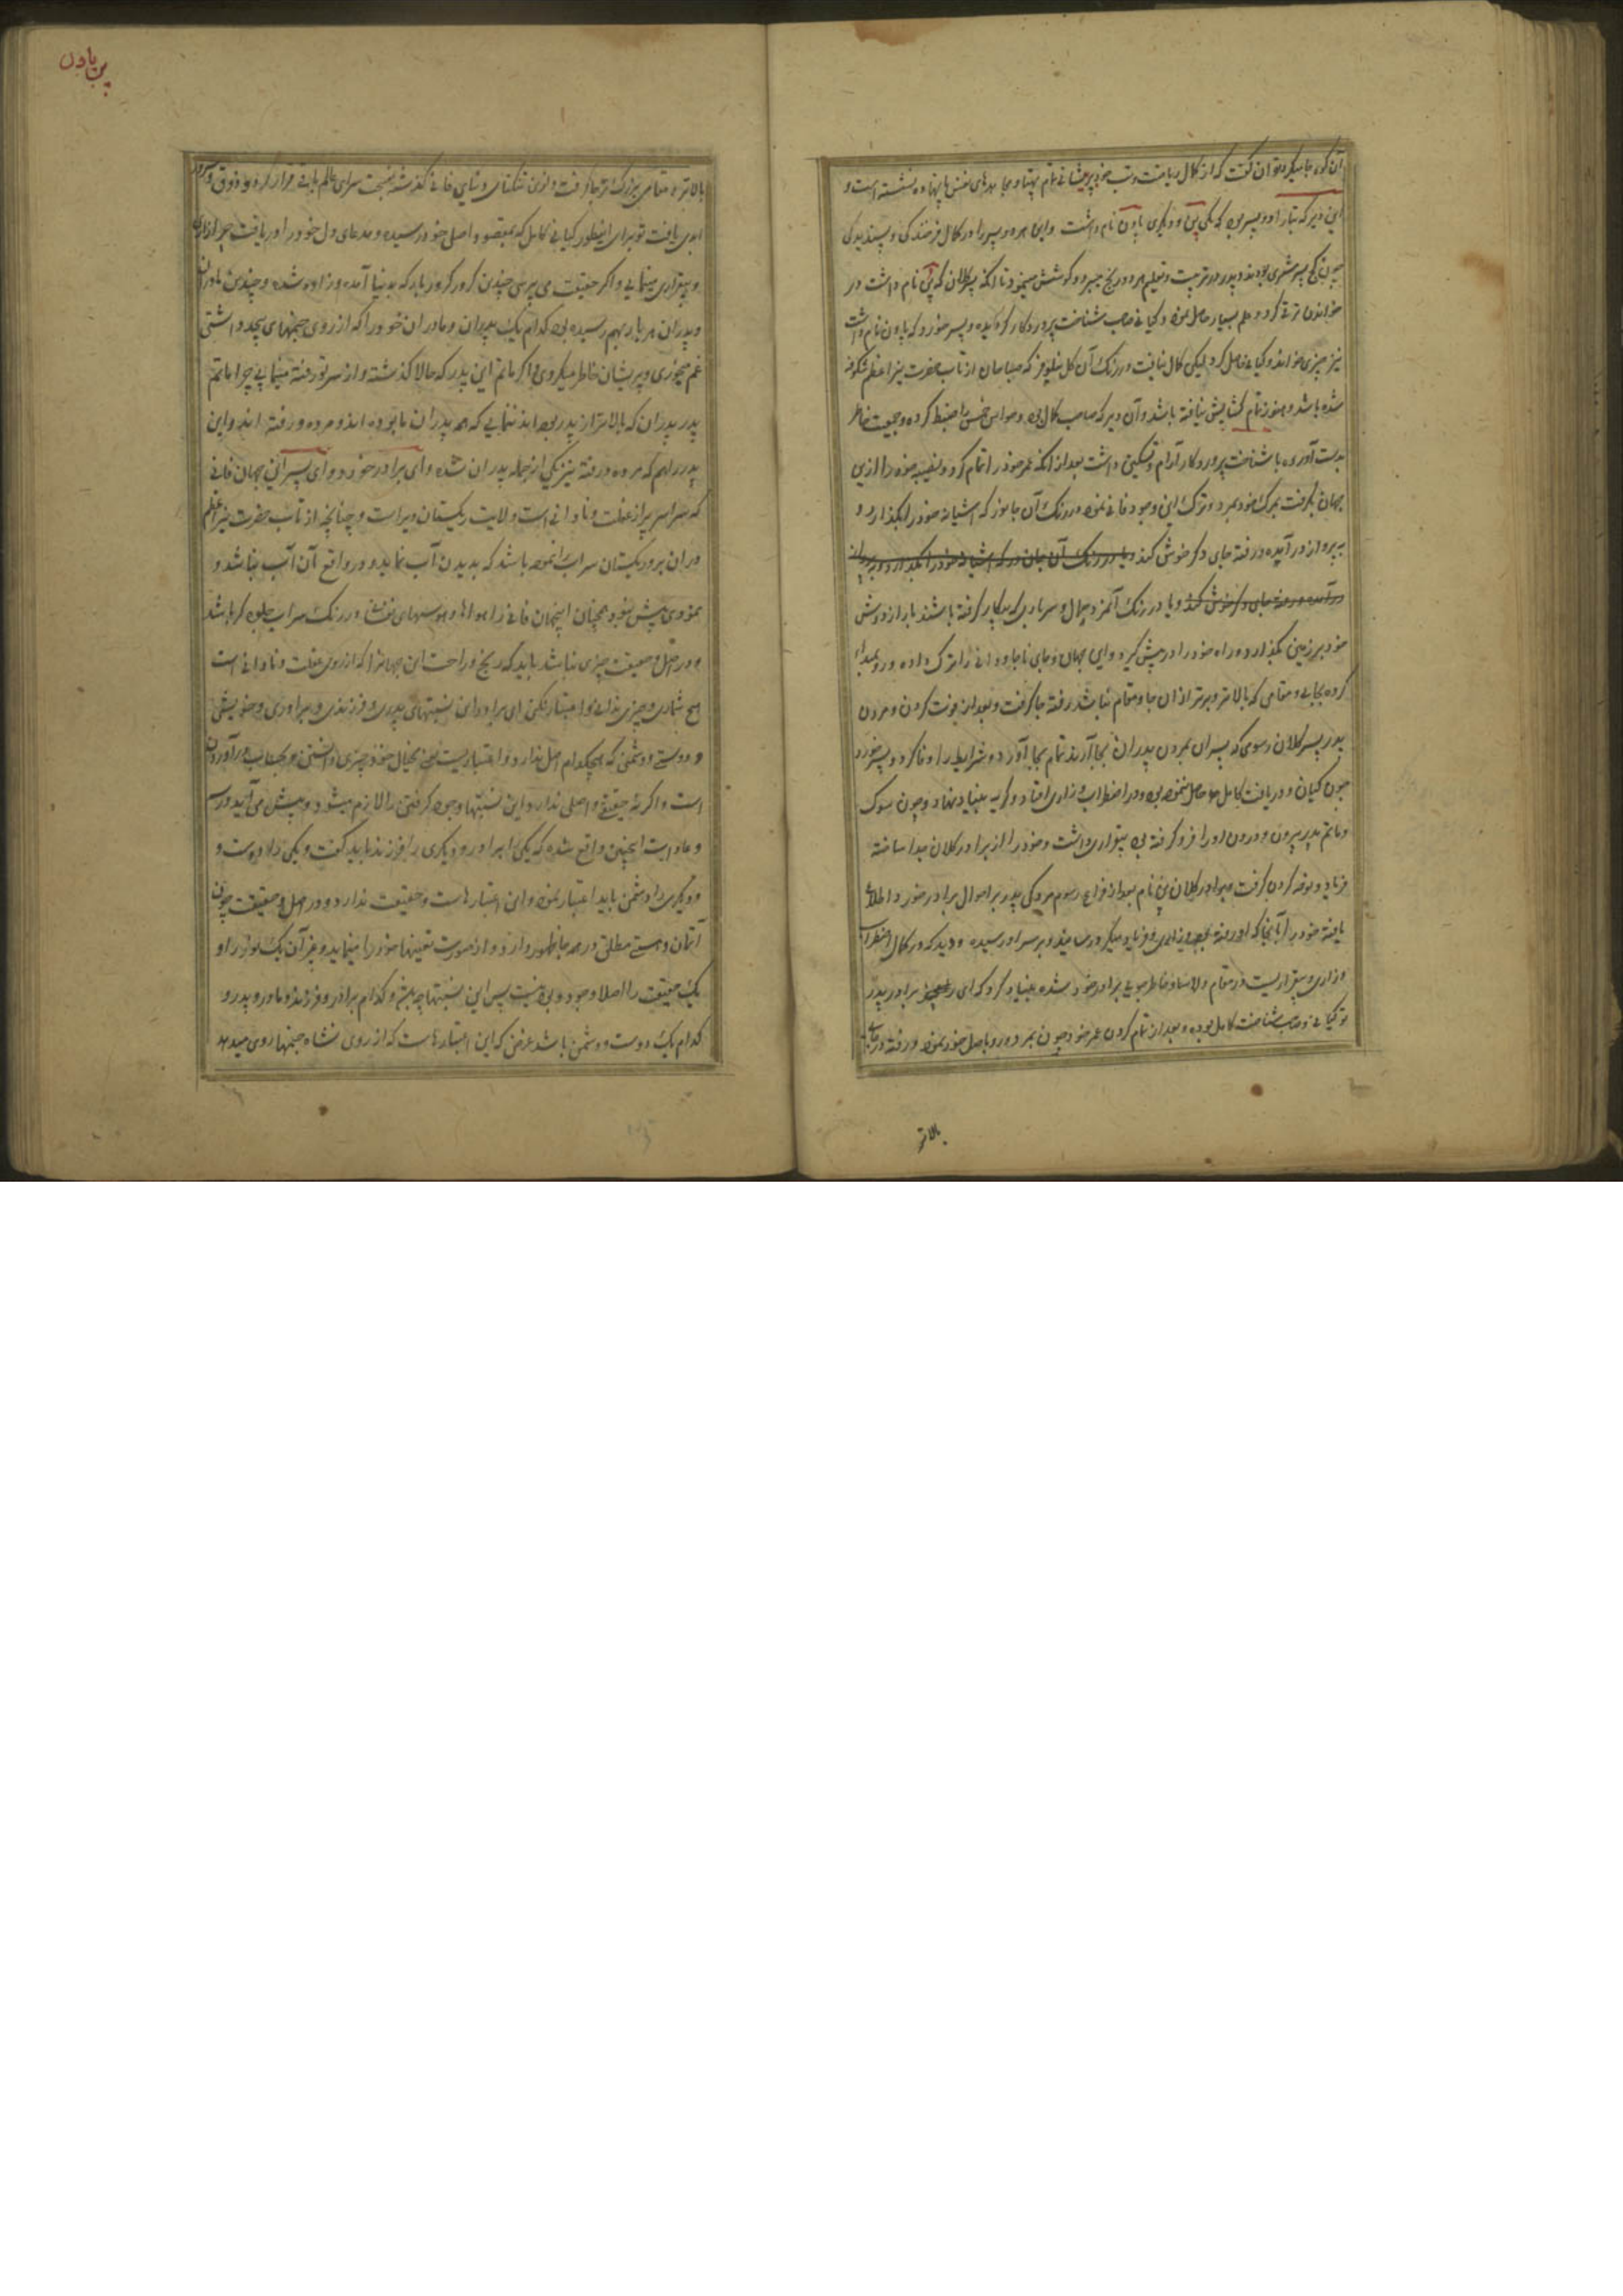 آن کوه جا میکرد توان گفت که از کمال ریاضت و تپ خود پریشانی تمام بجا نهاده نشسته است و
این دیر که تپا را دو پسر بود که یکی پن و دیگری پاون نام داشت و این هر دو پسر را در کمال فرزندگی و پسندیدگی
پسر بودند و پدر در تربیت و تعلیم هر دو رنج میبرد و کوشش مینمود تا آنکه پسر کلان که پن نام داشت در
خواندن ترقی کرد و علم بسیار حاصل نموده و گیانی صاحب شناخت پروردگار گردیده و پسر خورد که پاون نام داشت
نیز چیزی خواند و گیانی حاصل کرد لیکن کمال نیافت در رنگ آن گل نیلوفر که صباحان از تاب حضرت نیر اعظم شکوفه
شده باشد و هنوز تمام گشایش نیافته باشد و آن دیر که صاحب کمال بود و حواس خمس را ضبط کرده و جمعیت خاطر
بدست آورده با شناخت پروردگار آرام و تسکین داشت بعد از آنکه عمر خود را تمام کرد و نصیبه خود را ازین
جهان بگرفت بمرگ خود بمرد و ترک این وجود فانی نموده در رنگ آن جانور که آشیانه خود را بگذارد و
بپرواز در آید و رفته جای دگر خوش کند و یا در رنگ آن جانور که آشیانه خود را بگذارد و بپرواز
در آمده و رفته جای دگر خوش کند و یا در رنگ آنمزدور حمال و سرباری که بیگار گرفته باشند بار از دوش
خود بر زمین بگذارد و راه خود را در پیش گیرد و این جهان و جای ناجاودانی را ترک داده و رو بمبداء
کرده بجائی و مقامی که بالاتر و برتر از آن جا و مقام نباشد رفته جا گرفت و بعد از فوت کردن و مردن
پدر پسر کلان رسومی که پسران بمردن پدران بجا آرند تمام بجا آورد و شرایط را وفا کرد و پسر خورد
چون گیان و دریافت کامل حاصل ننموده بود در اضطراب و زاری افتاد و گریه بنیاد نهاد و چون سوک
و ماتم پدر بیرون و درون او را فرو گرفته بود بیقراری داشت و خود را از برادر کلان جدا ساخته
فریاد و نوحه کردن گرفت و برادر کلان پن نام بعد از فراغ رسوم مردگی پدر بر احوال برادر خورد اطلاع
یافته خود را آنجا که او رفته بود و زاری و فریاد میکرد رسانید و بر سر او رسیده و دید که در کمال اضطراب
و زاری و بیقراریست در مقام دلاسا و خاطرجوئی برادر خود شده بنیاد کرد که ای برادر پدر
تو گیانی و صاحب شناخت کامل بوده و بعد از تمام کردن عمر خود چون بمرد و رو باصل خود نموده و رفته در جای
بالاتر
پن پاون
بالاتر و مقامی بزرگ‌تر جا گرفت و ازین تنگنای دنیای فانی گذشته بنجات سرای عالم باقی قرار کرده و ذوق و سرور
ابدی یافت تو برای اینطور گیانی کامل که بمقصود اصلی خود رسیده و مدعای دل خود را دریافت چرا زاری
و بیقراری مینمایی و اگر حقیقت می پرسی چندین کرور کرور بار که بدنیا آمده و زاده شده و چندین مادران
و پدران هر بار بهم رسیده بود کدام یک پدران و مادران خود را که از روی جنمهای بیحد داشتی
غم میخوری و پریشان خاطر میگردی و اگر ماتم این پدر که حالا گذشته و از سر تو رفته مینمایی چرا ماتم
پدر پدران که بالاتر از پدر بوده اند ننمایی که همه پدران ما بوده اند و مرده و رفته اند و این
پدر را هم که مرده و رفته نیز یکی از جمله پدران شده و ای برادر خورد و ای پسر این جهان فانی
که سراسر پر از غفلت و نادانی است ولایت ریگستان ویراست و چنانچه از تاب حضرت نیر اعظم
در آن بر و ریگستان سراب نموده باشد که بدیدن آب نماید و در واقع آن آب نباشد و
نمودی بیش نبود همچنان اینجهان فانی را هواها و هوسهای نفسانی در رنگ سراب جلوه گر باشد
و در اصل و حقیقت چیزی نباشد باید که رنج و راحت این جهانرا که از روی غفلت و نادانی است
هیچ شماری و چیزی ندانی و اعتبار نکنی ای برادر این نسبتهای پدری و فرزندی و برادری و خویشی
و دوستی و دشمنی که هیچکدام اصل ندارد و اعتباریست محض بخیال خود چیزی دانستن و بحساب در آوردن
است و اگر نه حقیقتی و اصلی ندارد و این نسبتها وجود گرفتن را لازم میشود و پیش می آید و رسم
و عادت اینچنین واقع شده که یکی را برادر و دیگری را فرزند باید گفت و یکی را دوست و
دیگری را دشمن باید اعتبار نمود و این اعتبارهاست و حقیقت ندارد و در اصل و حقیقت چون
آتمان و هستی مطلق در همه جا ظهور دارد و از صورت تعینها خود را مینماید و بغیر آن یک نور و او
یک حقیقت را اصلا وجود و بود نیست پس این نسبتها چیست و کدام برادر و فرزند و مادر و پدر و
کدام یک دوست و دشمن باشد غرض که این اعتبارهاست که از روی نشاه جنمها روی میدهد